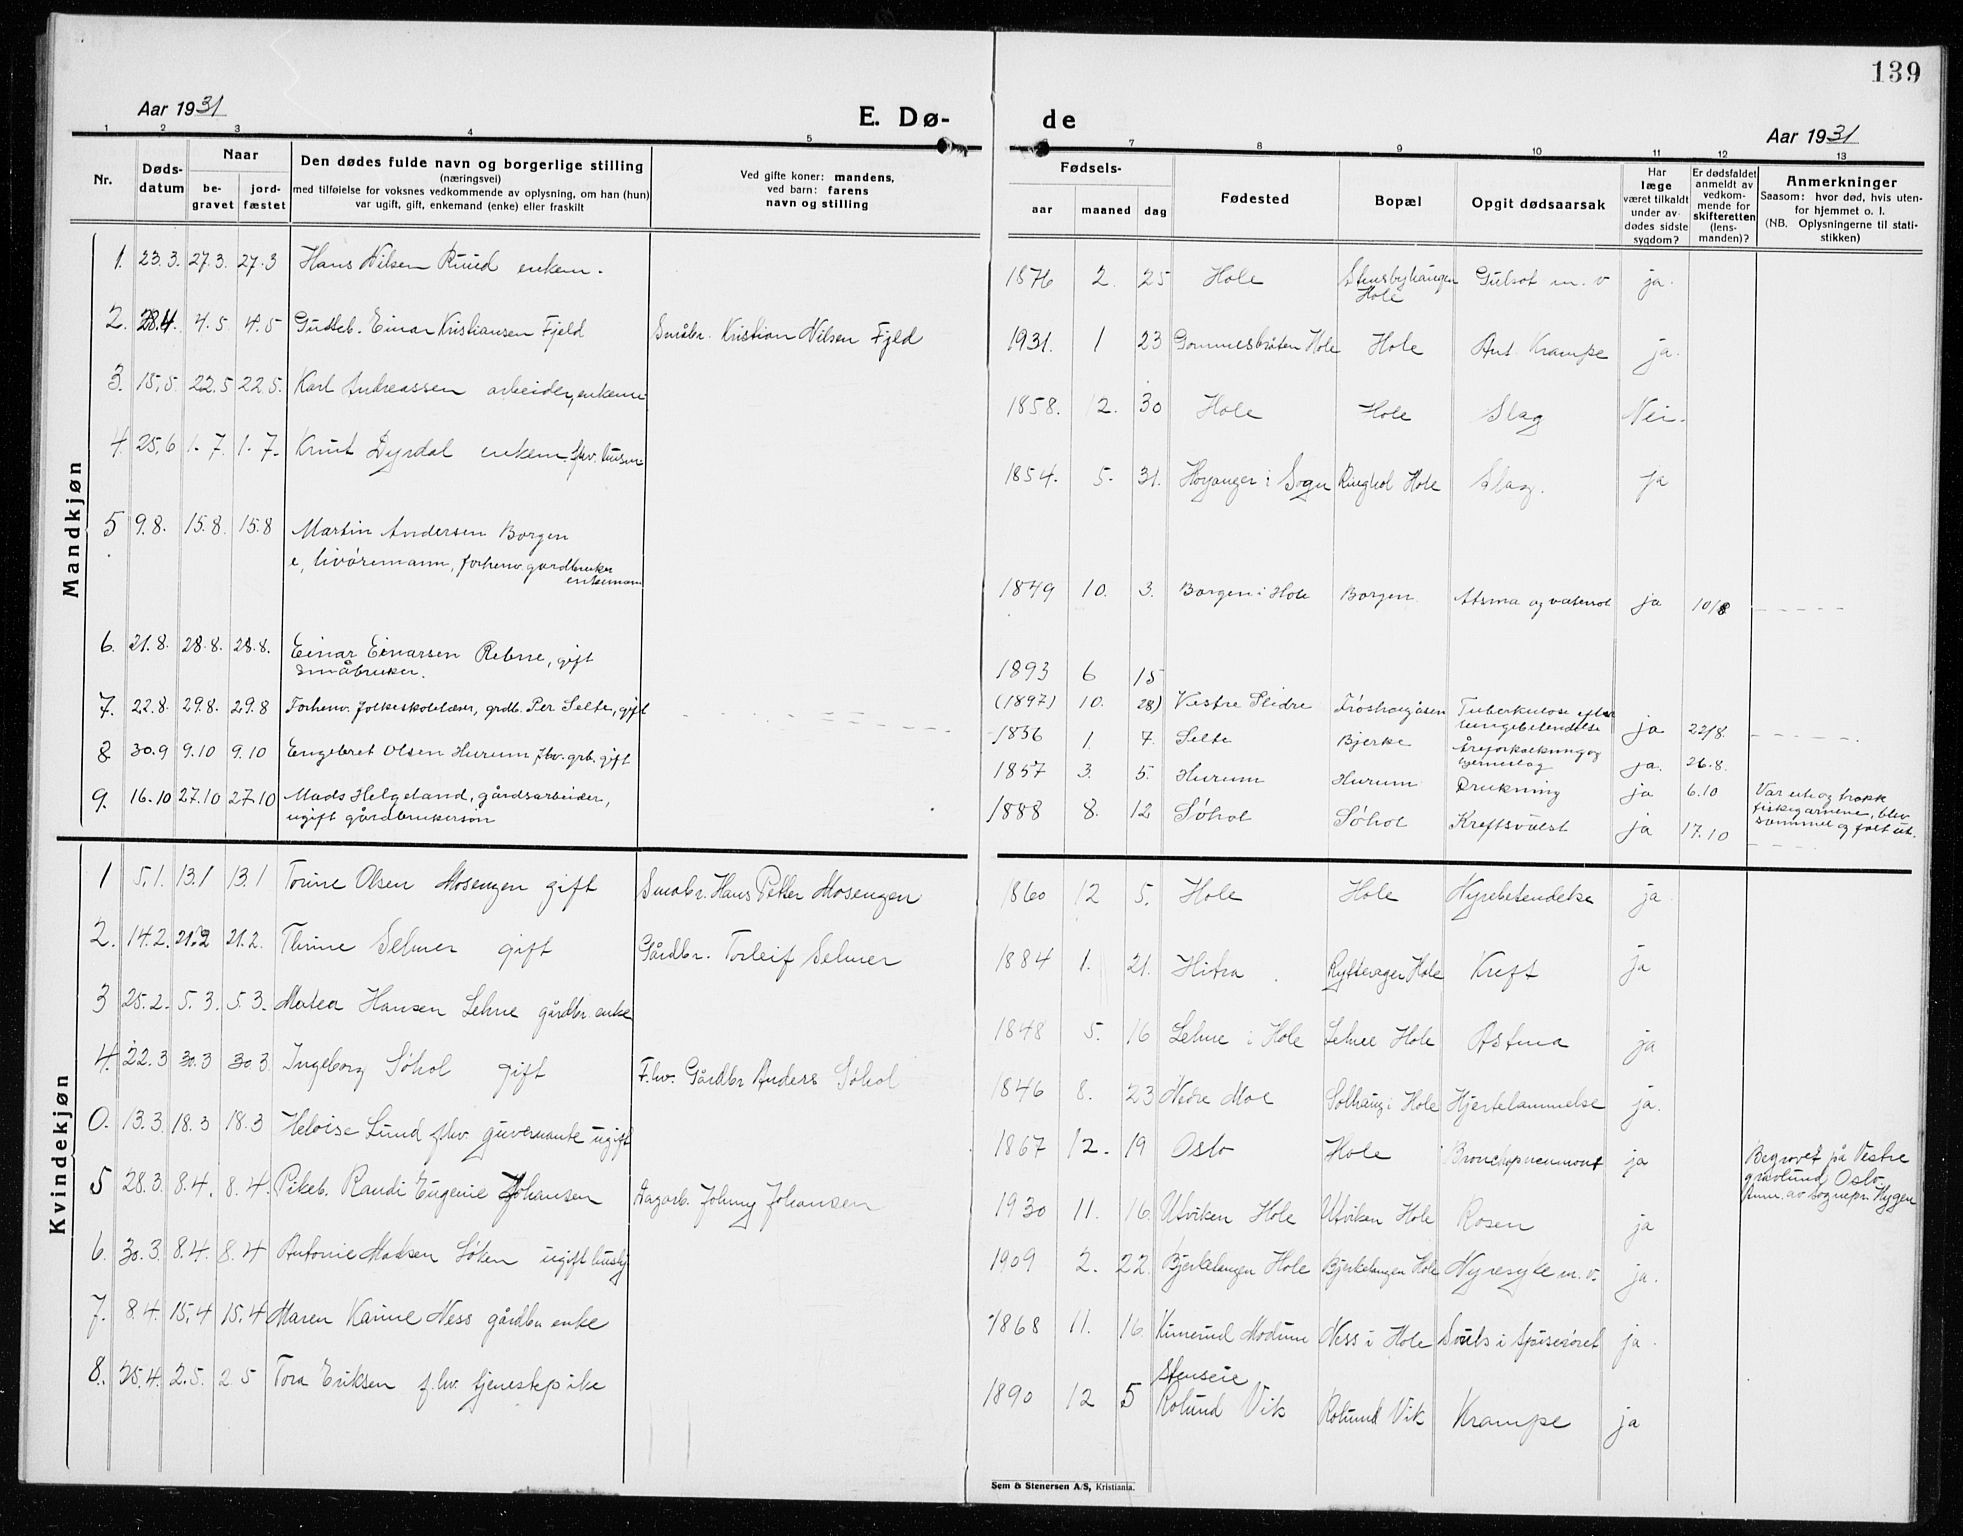 139
Aar 1931
E. Dø-
de
Aar 1931
1 2 3 4 5 7 8 9 10 11 12 13
Nr.
Døds-
datum
Naar
be-
gravet
jord-
fæstet
Den dødes fulde navn og borgerlige stilling
(næringsvei)
med tilføielse for voksnes vedkommende av oplysning, om han (hun)
var ugift, gift, enkemand (enke) eller fraskilt
Ved gifte koner: mandens,
ved barn: farens
navn og stilling
Fødsels-
aar
maaned
dag
Fødested
Bopæl
Opgit dødsaarsak
Har
læge
været tilkaldt
under av-
dødes sidste
sygdom?
Er dødsfaldet
anmeldt av
vedkom-
mende for
skifteretten
(lens-
manden)?
Anmerkninger
Saasom: hvor død, hvis uten-
for hjemmet o. l.
(NB. Oplysningerne til stati-
stikken)
Mandkjøn
1. 23.3. 27.3. 27.3 Hans Nilsen Ruud enkem. 1876 2. 25 Hole Gulsot m. v ja.
Hole
2. 28.4. 4.5 4.5 Gutteb. Einar Kristiansen Fjeld Småbr. Kristian Nilsen Fjeld 1931. 1 23 Gommesbråten Hole Hole Ant. Krampe ja.
3. 15.5. 22.5 22.5. Karl Andreassen arbeider, enkem. 1858. 12. 30 Hole Hole Slag Nei.
4. 25.6 1.7. 1.7. Knut Dyrdal enkem. fhv. husm. 1854. 5. 31. Høyanger i Sogn Hole Slag. ja
5 9.8. 15.8. 15.8 Martin Andersen Borgen
e, livøremann, forhenv. gårdbruker
enkemann
1849 10. 3. Borgen i Hole Borgen Atsma og vatersot ja 10/8
6. 21.8. 28.8. 28.8. Einar Einarsen Rebne, gift
småbruker.
1893 6 15
(1897) 10. 28) Vestre Slidre Frøshaugåsen Tuberkulose efter
lungebetendelse ja 22/8.
7. 22.8. 29.8. 29.8 Forhenv. folkeskolelærer, grdb. Per Selte, gift 1856 1. 7. Selte Bjerke Åreforkalkning og
hjerneslag ja. 26.8.
8 30.9 9.10 9.10 Engebret Olsen Hurum, fhv. grb. gift 1857 3. 5. Hurum Hurum Drukning ja 6.10 Var ute og trakk
fiskegarnene, blev
svimmel og falt ut.
9. 16.10 27.10 27.10 Mads Helgeland, gårdsarbeider,
ugift gårdbrukersøn
1888 8. 12 Søhol Søhol Kreftsvulst ja 17.10
Kvindekjøn
1 5.1. 13.1 13.1 Torine Olsen Mosengen gift Småbr. Hans Petter Mosengen 1860 12 5. Hole Hole Nyrebetendelse ja
2. 14.2. 21.2 21.2. Thrine Selmer gift Gårdbr. Torleif Selmer 1884 1. 21. Hitra Rytterager Hole Kreft ja
3 25.2. 5.3. 5.3. Matea Hansen Lehne gårdbr. enke 1848 5. 16 Lehne i Hole Lehne Hole Astma ja
4. 22.3 30.3 30.3 Ingeborg Søhol gift F.hv. Gårdbr Anders Søhol 1846 8. 23 Nedre Moe Solhaug i Hole Hjertelammelse ja.
0. 13.3. 18.3 18.3 Heloise Lund f.hv. guvernante ugift 1867 12. 19 Oslo Hole Bronchopneumoni ja Begravet på Vestre
gravlund, Oslo.
Anm. av sognepr. Hygen
5 28.3. 8.4. 8.4. Pikeb. Randi Eugenie Johansen Dagarb. Johnny Johansen 1930 11. 16. Utviken Hole Utviken Hole Rosen ja
6. 30.3. 8.4. 8.4 Antonie Madsen Løken ugift 1909 2. 22. Bjerkelangen Hole Bjerkelangen Hole Nyresyke m. v. ja.
7. 8.4. 15.4 15.4 Maren Karine Ness gårdbr. enke 1868 11. 16. Kimerud Modum Ness i Hole Svulst i spiserøret ja.
8. 25.4. 2.5. 2.5 Tora Eriksen f.hv. tjenestepike 1890 12 5 Stenseie
Rolund Vik Rolund Vik Krampe ja
Sem & Stenersen A/S, Kristiania.